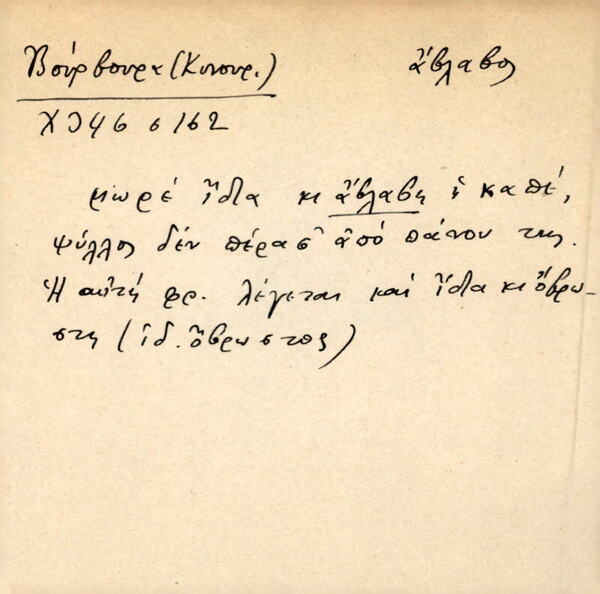 Βούρβουρα (Κυνουρ.) ἄβλαβος
Χ 946 σ 162
μωρέ ἴδια κι ἄβλαβη ἡ καπέ,
ψύλλος δέν πέρασ' ἀπό πάνου της.
Ἡ αὐτή φρ. λέγεται καί ἴδια κι ὄβρω-
στη (ἰδ. ὄβρωστος)